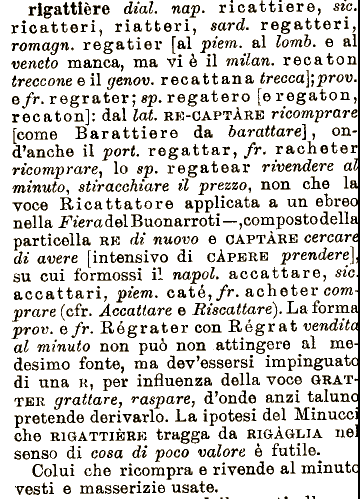 rigattière dial. nap. ricattiere, sic.
ricatteri, riatteri, sard. regatteri,
romagn. regatier [al piem. al lomb. e al
veneto manca, ma vi è il milan. recaton
treccone e il genov. recattana trecca]; prov.
e fr. regrater; sp. regatero [e regaton,
recaton]: dal lat. RE-CAPTÀRE ricomprare
[come Barattiere da barattare], on-
d'anche il port. regattar, fr. racheter
ricomprare, lo sp. regatear rivendere al
minuto, stiracchiare il prezzo, non che la
voce Ricattatore applicata a un ebreo
nella Fiera del Buonarroti —, composto della
particella RE di nuovo e CAPTÀRE cercare
di avere [intensivo di CÀPERE prendere],
su cui formossi il napol. accattare, sic.
accattari, piem. caté, fr. acheter com-
prare (cfr. Accattare e Riscattare). La forma
prov. e fr. Régrater con Régrat vendita
al minuto non può non attingere al me-
desimo fonte, ma dev'essersi impinguato
di una R, per influenza della voce GRAT-
TER grattare, raspare, d'onde anzi taluno
pretende derivarlo. La ipotesi del Minucci
che RIGATTIÈRE tragga da RIGÀGLIA nel
senso di cosa di poco valore è futile.
Colui che ricompra e rivende al minuto
vesti e masserizie usate.